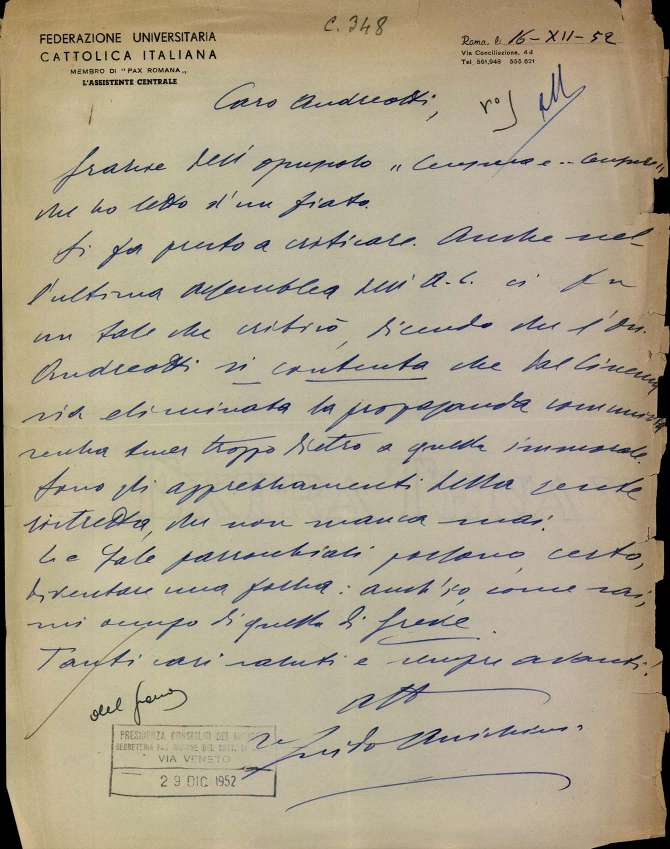 C. 348
FEDERAZIONE UNIVERSITARIA
CATTOLICA ITALIANA
MEMBRO DI "PAX ROMANA„
L'ASSISTENTE CENTRALE
Roma, li 16-XII-52
Via Conciliazione, 4d
Tel. 561,948 555 621
Caro Andreotti,
grazie dell'opuscolo „ Censura e .. censure „
che ho letto d'un fiato.
Si fa presto a criticare. Anche nel-
l'ultima assemblea dell'A.C. ci fu
un tale che criticò, dicendo che l'On.
Andreotti si contenta che dal Cinema
sia eliminata la propaganda comunista
senza tener troppo dietro a quella immorale.
Sono gli apprezzamenti della gente
ristretta, che non manca mai.
Le Sale parrocchiali possono, certo,
diventare una forza: anch'io, come sai,
mi occupo di quella di Grede.
Tanti cari saluti e sempre avanti!
aff
Guido Anichini
PRESIDENZA CONSIGLIO DEI
VIA VENETO
29 DIC 1952